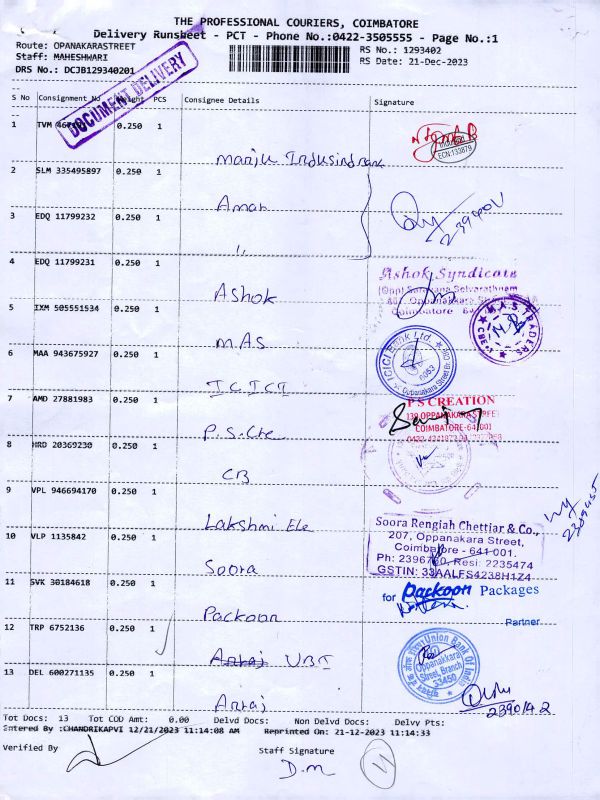 THE PROFESSIONAL COURIERS, COIMBATORE
Delivery Runsheet - PCT - Phone No.:0422-3505555 - Page No.:1
Route: OPANAKARASTREET
RS No.: 1293402
Staff: MAHESHWARI
RS Date: 21-Dec-2023
DRS No.: DCJB129340201
DOCUMENT DELIVERY
S No Consignment PCS Consignee Details Signature
1 TVM 0.250 1
Manju Indusind Bank
ECN:133879
2 SLM 335495897 0.250 1
Aman
3 EDQ 11799232 0.250 1
"
4 EDQ 11799231 0.250 1
Ashok
Ashok Syndicate
(Opp) Saravana Selvarathnam
Coimbatore
5 IXM 505551534 0.250 1
MAS
M.A.S TRADERS
CBE-1
6 MAA 943675927 0.250 1
ICICI
ICICI Bank Ltd.
Oppanakara Street
7 AMD 27881983 0.250 1
P.S.Cre
P S CREATION
139 OPPANAKARA STREET
COIMBATORE-641001
8 HRD 20369230 0.250 1
CB
9 VPL 946694170 0.250 1
Lakshmi Ele
2389455
10 VLP 1135842 0.250 1
Soora
Soora Rengiah Chettiar & Co.,
207, Oppanakara Street,
Coimbatore - 641 001.
Resi: 2235474
GSTIN: 33AALFS4238H1Z4
11 SVK 30184618 0.250 1
Packoon
for Packoon Packages
Partner
12 TRP 6752136 0.250 1
UBI
Union Bank Of India
Oppanakkara
Street, Branch
33450
13 DEL 600271135 0.250 1
Antaj
2390142
Tot Docs: 13 Tot COD Amt: 0.00 Delvd Docs: Non Delvd Docs: Delvy Pts:
Entered By :CHANDRIKAPVI 12/21/2023 11:14:08 AM Reprinted On: 21-12-2023 11:14:33
Verified By Staff Signature
D.M